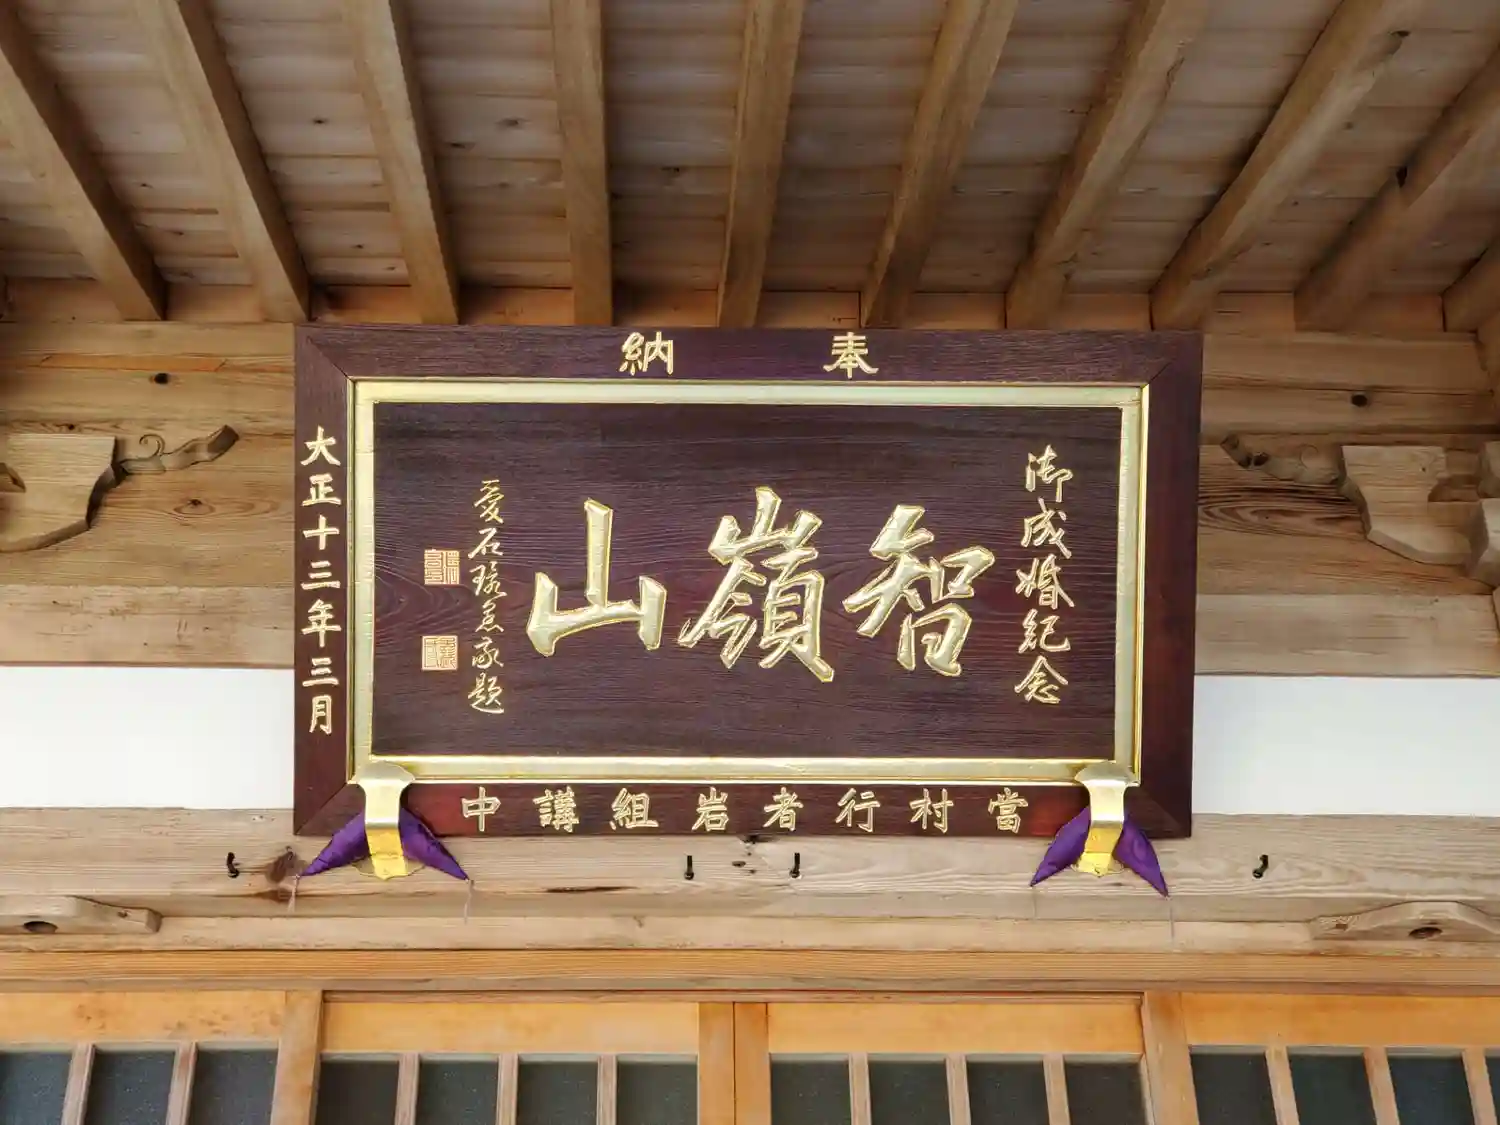 奉納
御成婚紀念
智嶺山
愛石瑑為家題
大正十三年三月
當村行者岩組講中